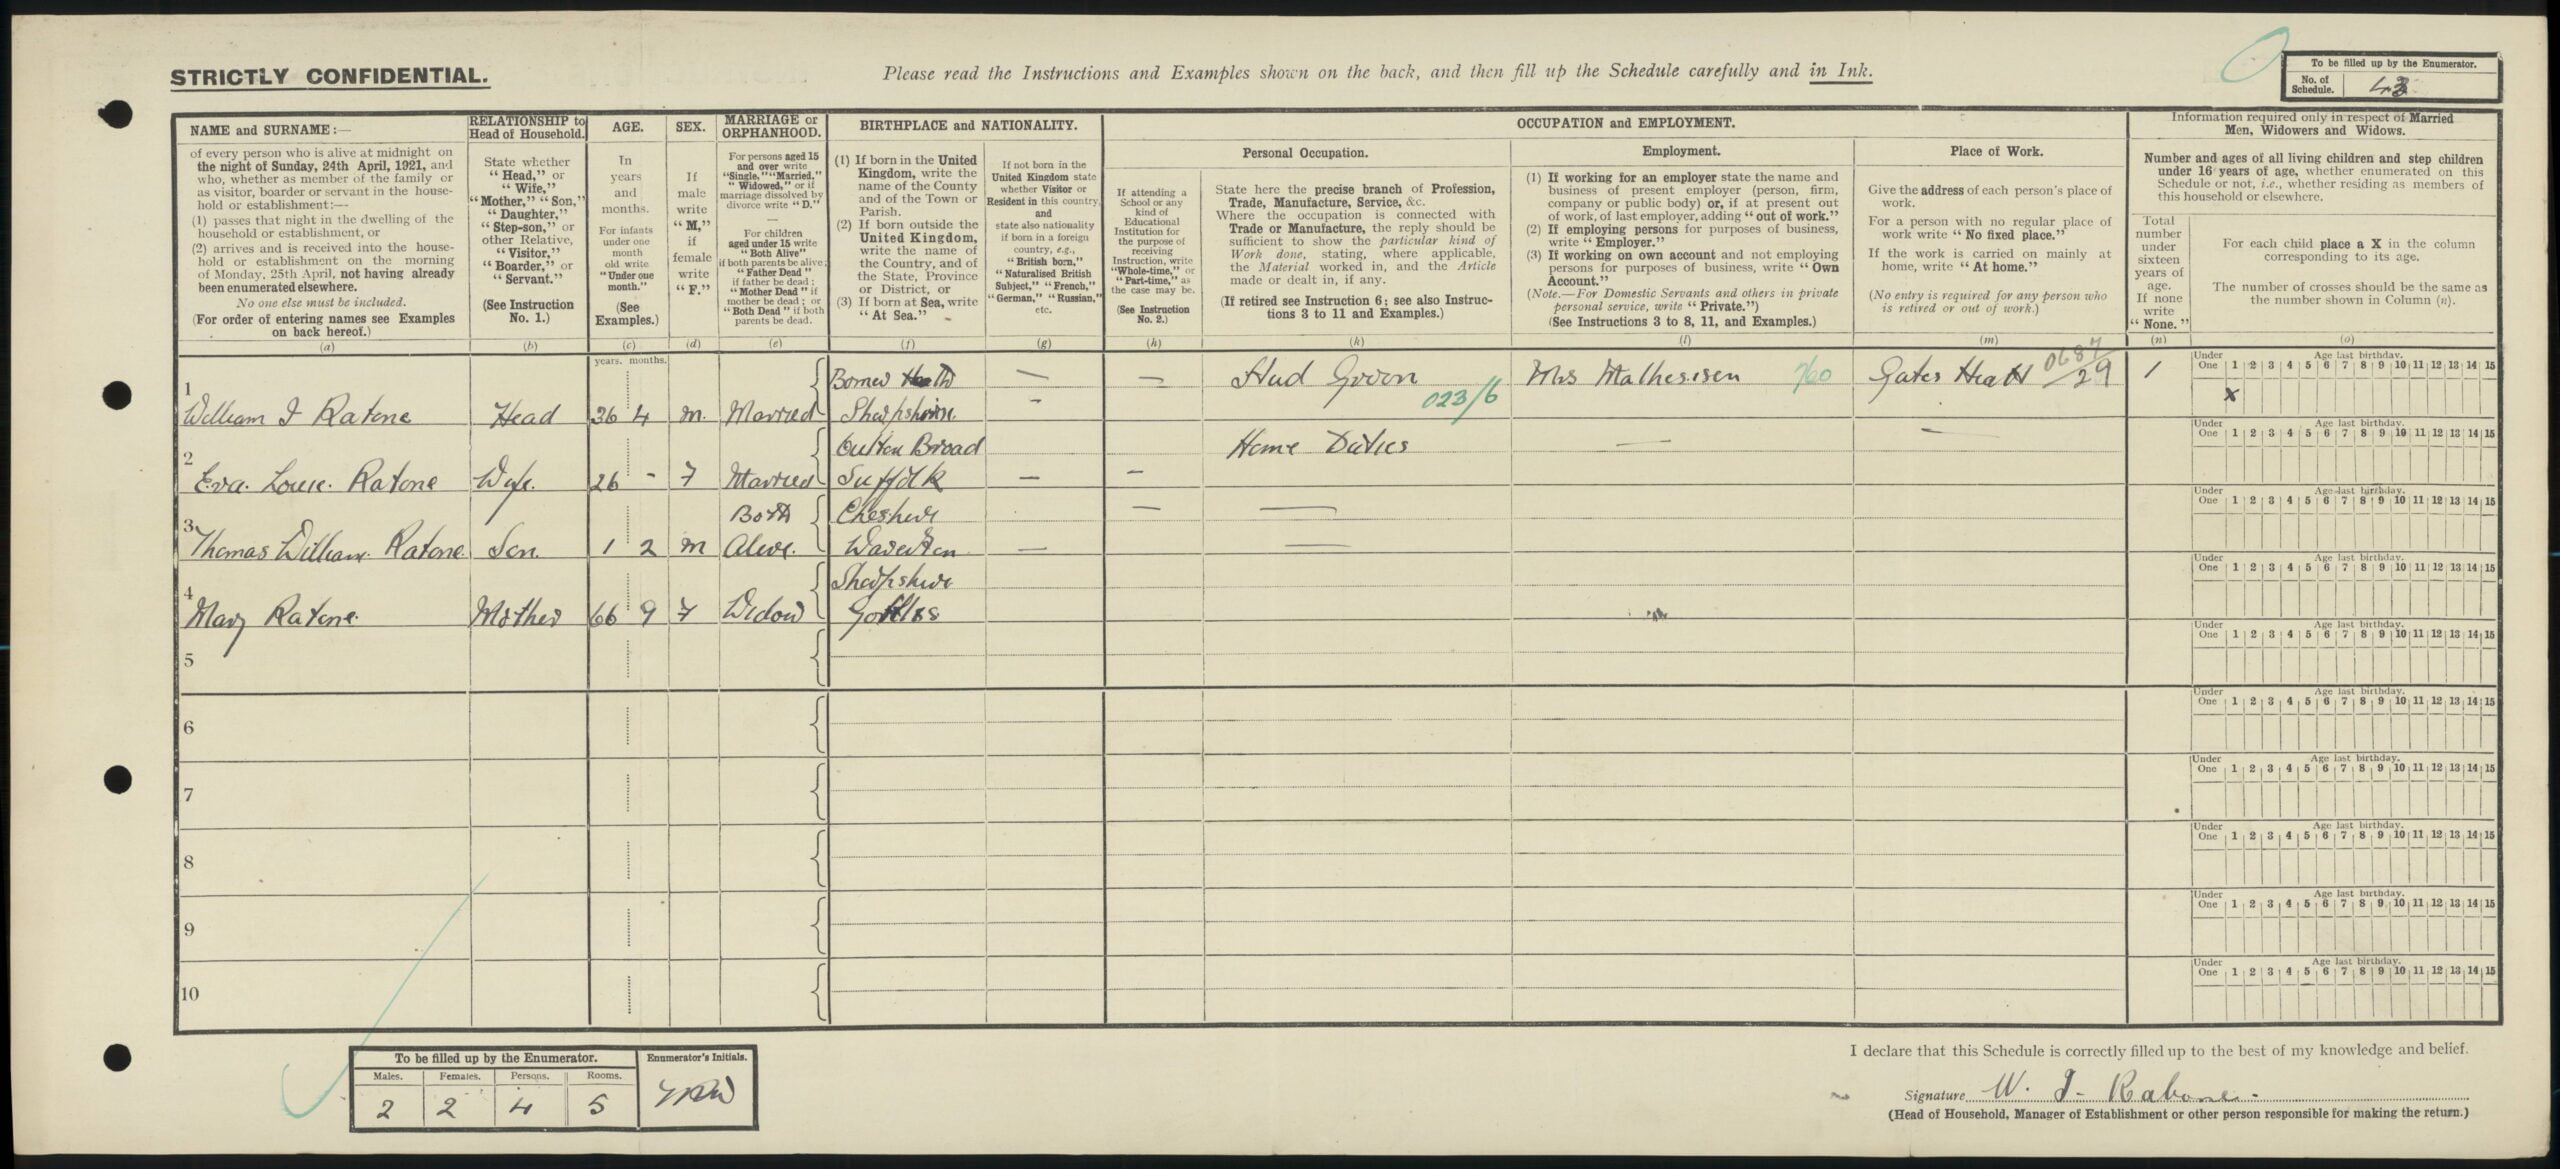 STRICTLY CONFIDENTIAL.
Please read the Instructions and Examples shown on the back, and then fill up the Schedule carefully and in Ink.
To be filled up by the Enumerator.
No. of Schedule. 43
NAME and SURNAME:—
of every person who is alive at midnight on
the night of Sunday, 24th April, 1921, and
who, whether as member of the family or
as visitor, boarder or servant in the house-
hold or establishment:—
(1) passes that night in the dwelling of the
household or establishment, or
(2) arrives and is received into the house-
hold or establishment on the morning
of Monday, 25th April, not having already
been enumerated elsewhere.
No one else must be included.
(For order of entering names see Examples
on back hereof.)
(a)
RELATIONSHIP to
Head of Household.
State whether
"Head," or
"Wife,"
"Mother," "Son,"
"Daughter,"
"Step-son," or
other Relative,
"Visitor,"
"Boarder," or
"Servant."
(See Instruction
No. 1.)
(b)
AGE.
In
years
and
months.
For infants
under one
month
old write
"Under one
month."
(See
Examples.)
(c)
SEX.
If
male
write
"M,"
if
female
write
"F."
(d)
MARRIAGE or
ORPHANHOOD.
For persons aged 15
and over write
"Single," "Married,"
"Widowed," or if
marriage dissolved by
divorce write "D."
—
For children
aged under 15 write
"Both Alive"
if both parents be alive;
"Father Dead"
if father be dead;
"Mother Dead" if
mother be dead; or
"Both Dead" if both
parents be dead.
(e)
BIRTHPLACE and NATIONALITY.
(1) If born in the United
Kingdom, write the
name of the County
and of the Town or
Parish.
(2) If born outside the
United Kingdom,
write the name of
the Country, and of
the State, Province
or District, or
(3) If born at Sea, write
"At Sea."
(f)
If not born in the
United Kingdom state
whether Visitor or
Resident in this country,
and
state also nationality
if born in a foreign
country, e.g.,
"British born,"
"Naturalised British
Subject," "French,"
"German," "Russian,"
etc.
(g)
OCCUPATION and EMPLOYMENT.
If attending a
School or any
kind of
Educational
Institution for
the purpose of
receiving
Instruction, write
"Whole-time," or
"Part-time," as
the case may be.
(See Instruction
No. 2.)
(h)
Personal Occupation.
State here the precise branch of Profession,
Trade, Manufacture, Service, &c.
Where the occupation is connected with
Trade or Manufacture, the reply should be
sufficient to show the particular kind of
Work done, stating, where applicable,
the Material worked in, and the Article
made or dealt in, if any.
(If retired see Instruction 6; see also Instruc-
tions 3 to 11 and Examples.)
(k)
Employment.
(1) If working for an employer state the name and
business of present employer (person, firm,
company or public body) or, if at present out
of work, of last employer, adding "out of work."
(2) If employing persons for purposes of business,
write "Employer."
(3) If working on own account and not employing
persons for purposes of business, write "Own
Account."
(Note.—For Domestic Servants and others in private
personal service, write "Private.")
(See Instructions 3 to 8, 11, and Examples.)
(l)
Place of Work.
Give the address of each person's place of
work.
For a person with no regular place of
work write "No fixed place."
If the work is carried on mainly at
home, write "At home."
(No entry is required for any person who
is retired or out of work.)
(m)
Information required only in respect of Married
Men, Widowers and Widows.
Number and ages of all living children and step children
under 16 years of age, whether enumerated on this
Schedule or not, i.e., whether residing as members of
this household or elsewhere.
Total
number
under
sixteen
years of
age.
If none
write
"None."
(n)
For each child place a X in the column
corresponding to its age.
The number of crosses should be the same as
the number shown in Column (n).
(o)
years. months.
Under One Age last birthday. 1 2 3 4 5 6 7 8 9 10 11 12 13 14 15
1 William J Ratone Head 36 4 M. Married Shropshire. — — 023/6 Mrs 760 0687/29 1 X
Under One Age last birthday. 1 2 3 4 5 6 7 8 9 10 11 12 13 14 15
2 Eva. Louie. Ratone Wife. 26 - F Married Oulton Broad Suffolk — — Home Duties — —
Under One Age last birthday. 1 2 3 4 5 6 7 8 9 10 11 12 13 14 15
3 Thomas William. Ratone Son. 1 2 M Both Alive. Cheshire Waverton — — — —
Under One Age last birthday. 1 2 3 4 5 6 7 8 9 10 11 12 13 14 15
4 Mary Ratone. Mother 66 9 F Widow Shropshire
Under One Age last birthday. 1 2 3 4 5 6 7 8 9 10 11 12 13 14 15
5
Under One Age last birthday. 1 2 3 4 5 6 7 8 9 10 11 12 13 14 15
6
Under One Age last birthday. 1 2 3 4 5 6 7 8 9 10 11 12 13 14 15
7
Under One Age last birthday. 1 2 3 4 5 6 7 8 9 10 11 12 13 14 15
8
Under One Age last birthday. 1 2 3 4 5 6 7 8 9 10 11 12 13 14 15
9
Under One Age last birthday. 1 2 3 4 5 6 7 8 9 10 11 12 13 14 15
10
To be filled up by the Enumerator.
Males. Females. Persons. Rooms.
2 2 4 5
Enumerator's Initials.
I declare that this Schedule is correctly filled up to the best of my knowledge and belief.
Signature W. J. Rabone.
(Head of Household, Manager of Establishment or other person responsible for making the return.)